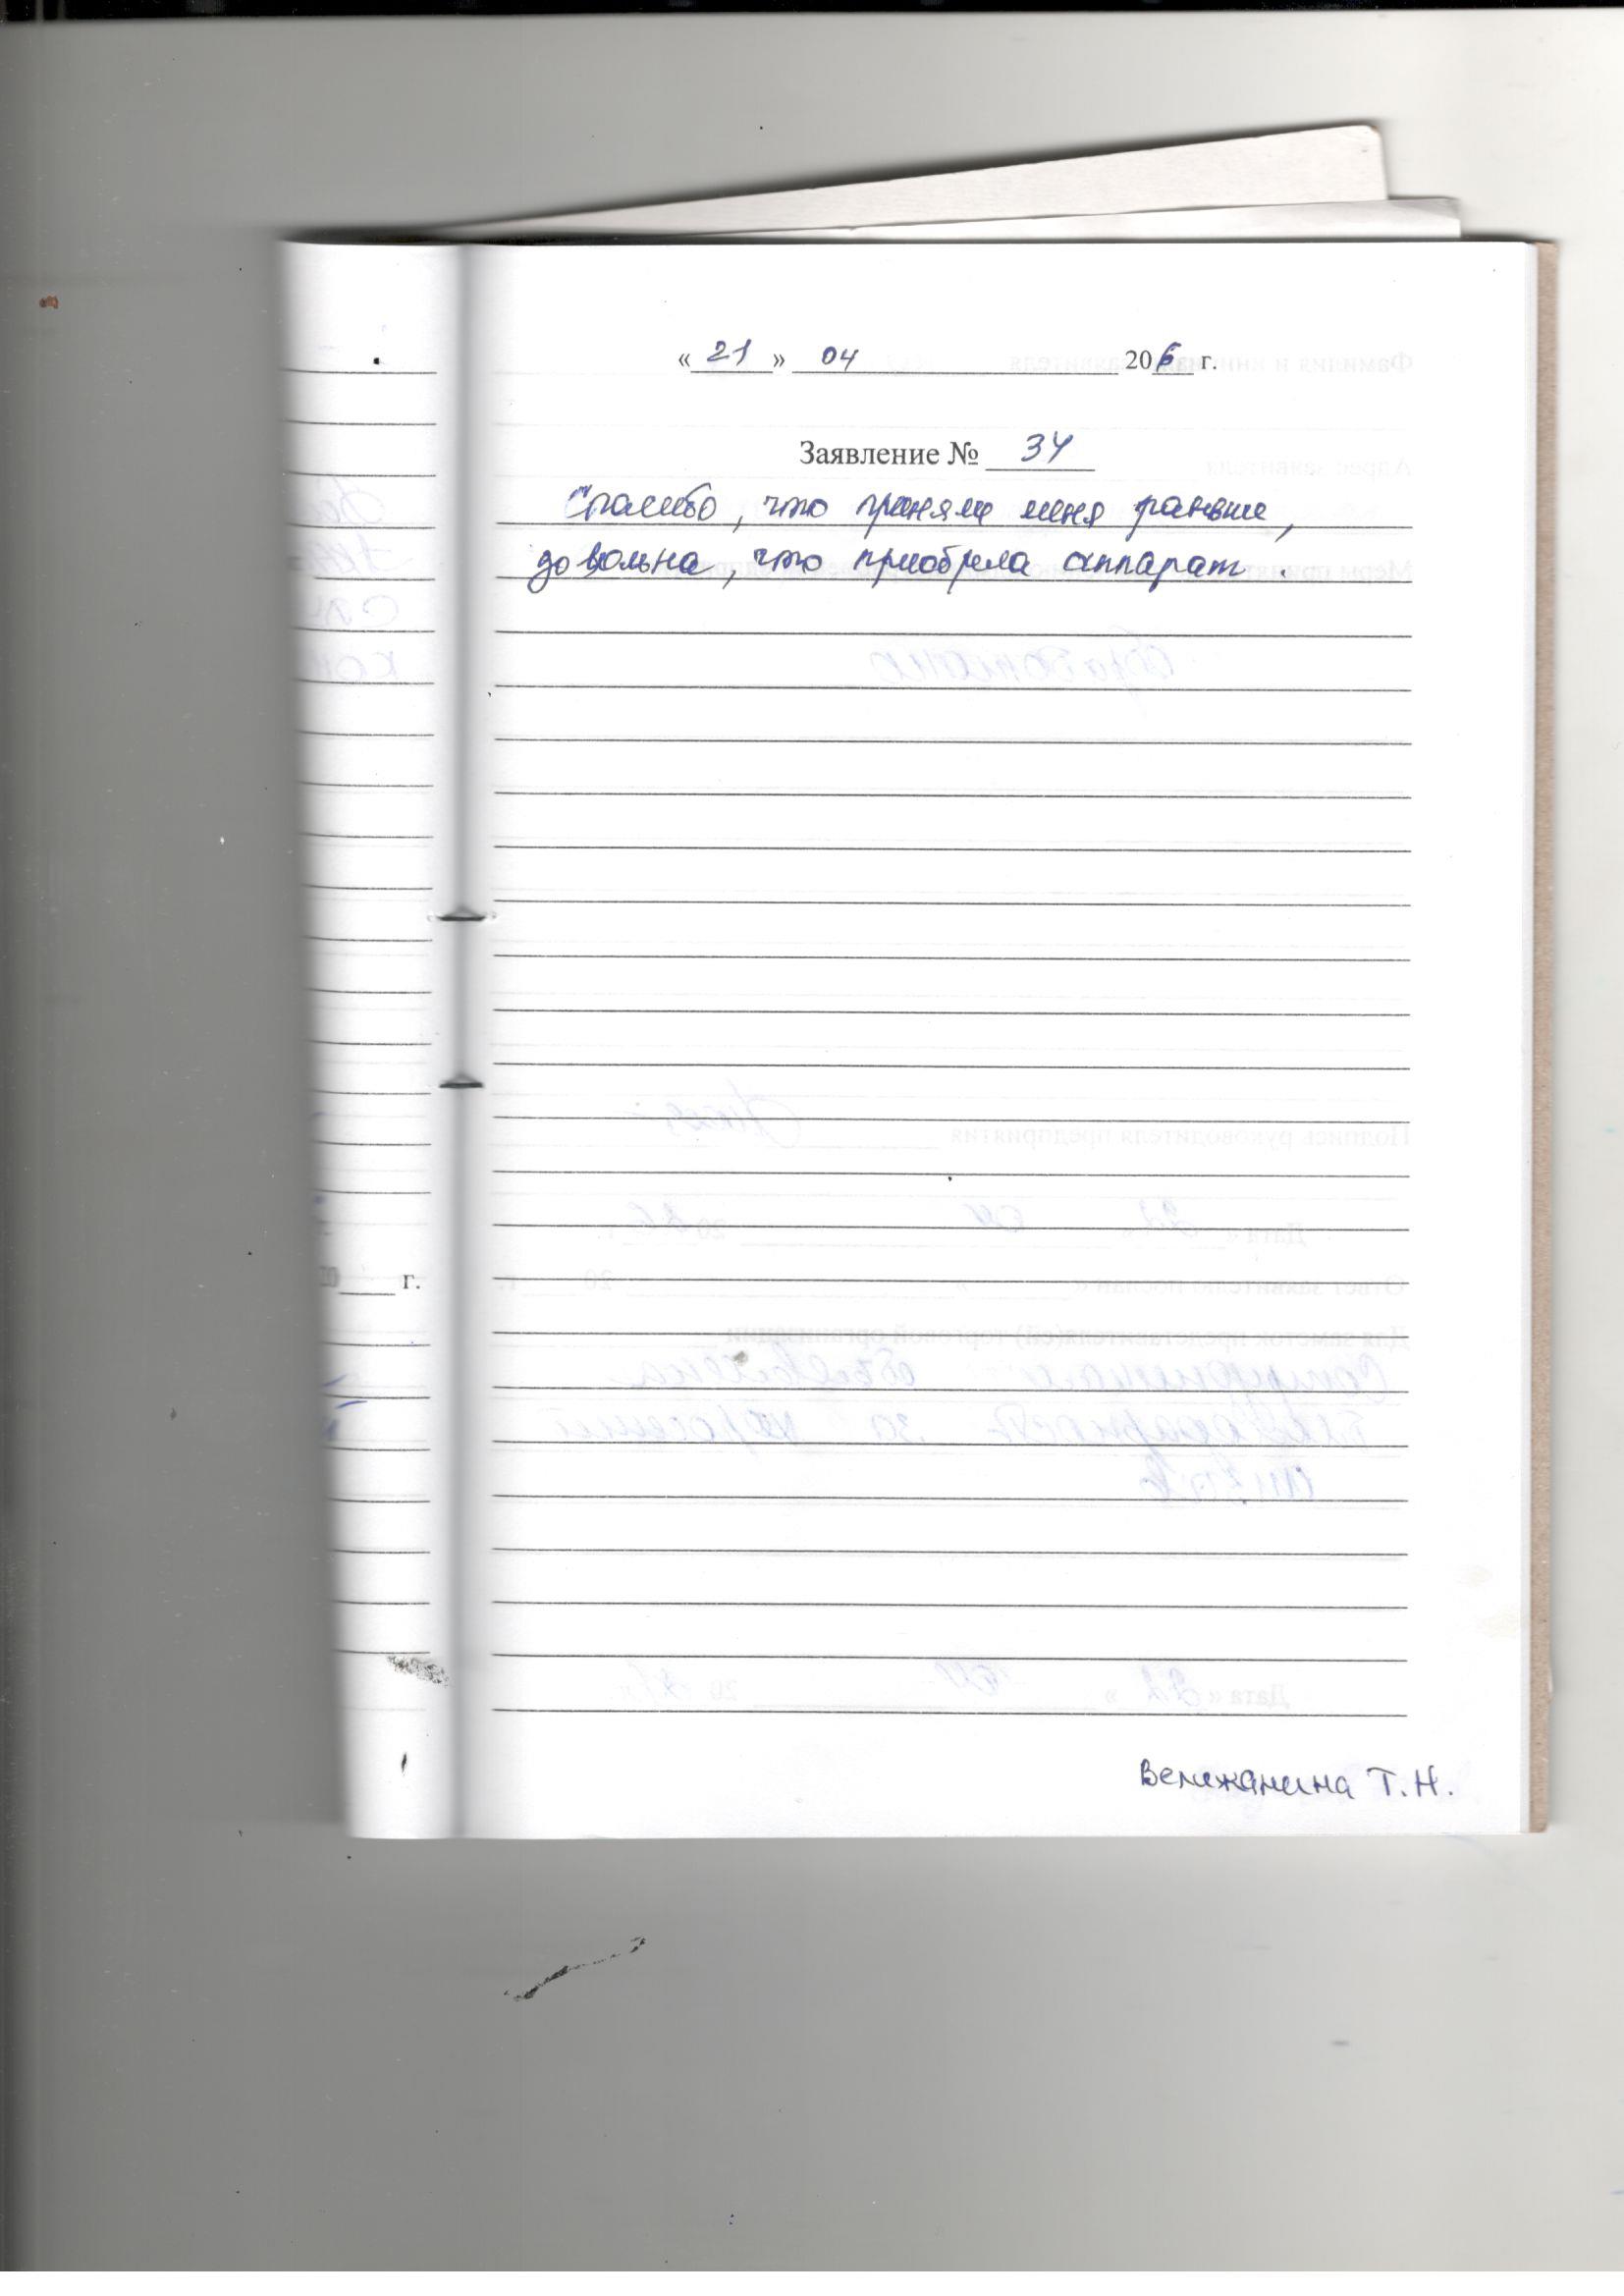 « 21 » 04 20 6 г.
Заявление № 34
Спасибо, что приняли меня раньше,
довольна, что приобрела аппарат.
г.
Вележанина Т.Н.